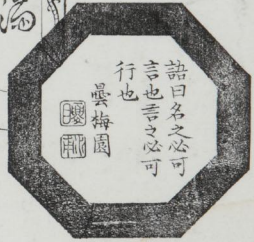 語曰名之必可
言也言之必可
行也
曇梅園